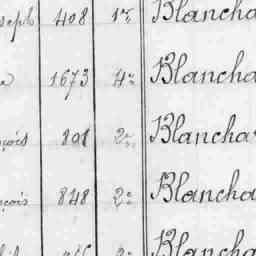 seph 408 1re Blancha
e 1673 4e Blancha
nçois 801 2e Blanchar
nçois 848 2e Blancha
Blancha